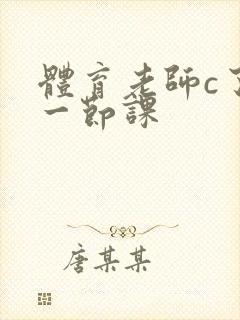 體育老師c了
一節課
唐某某